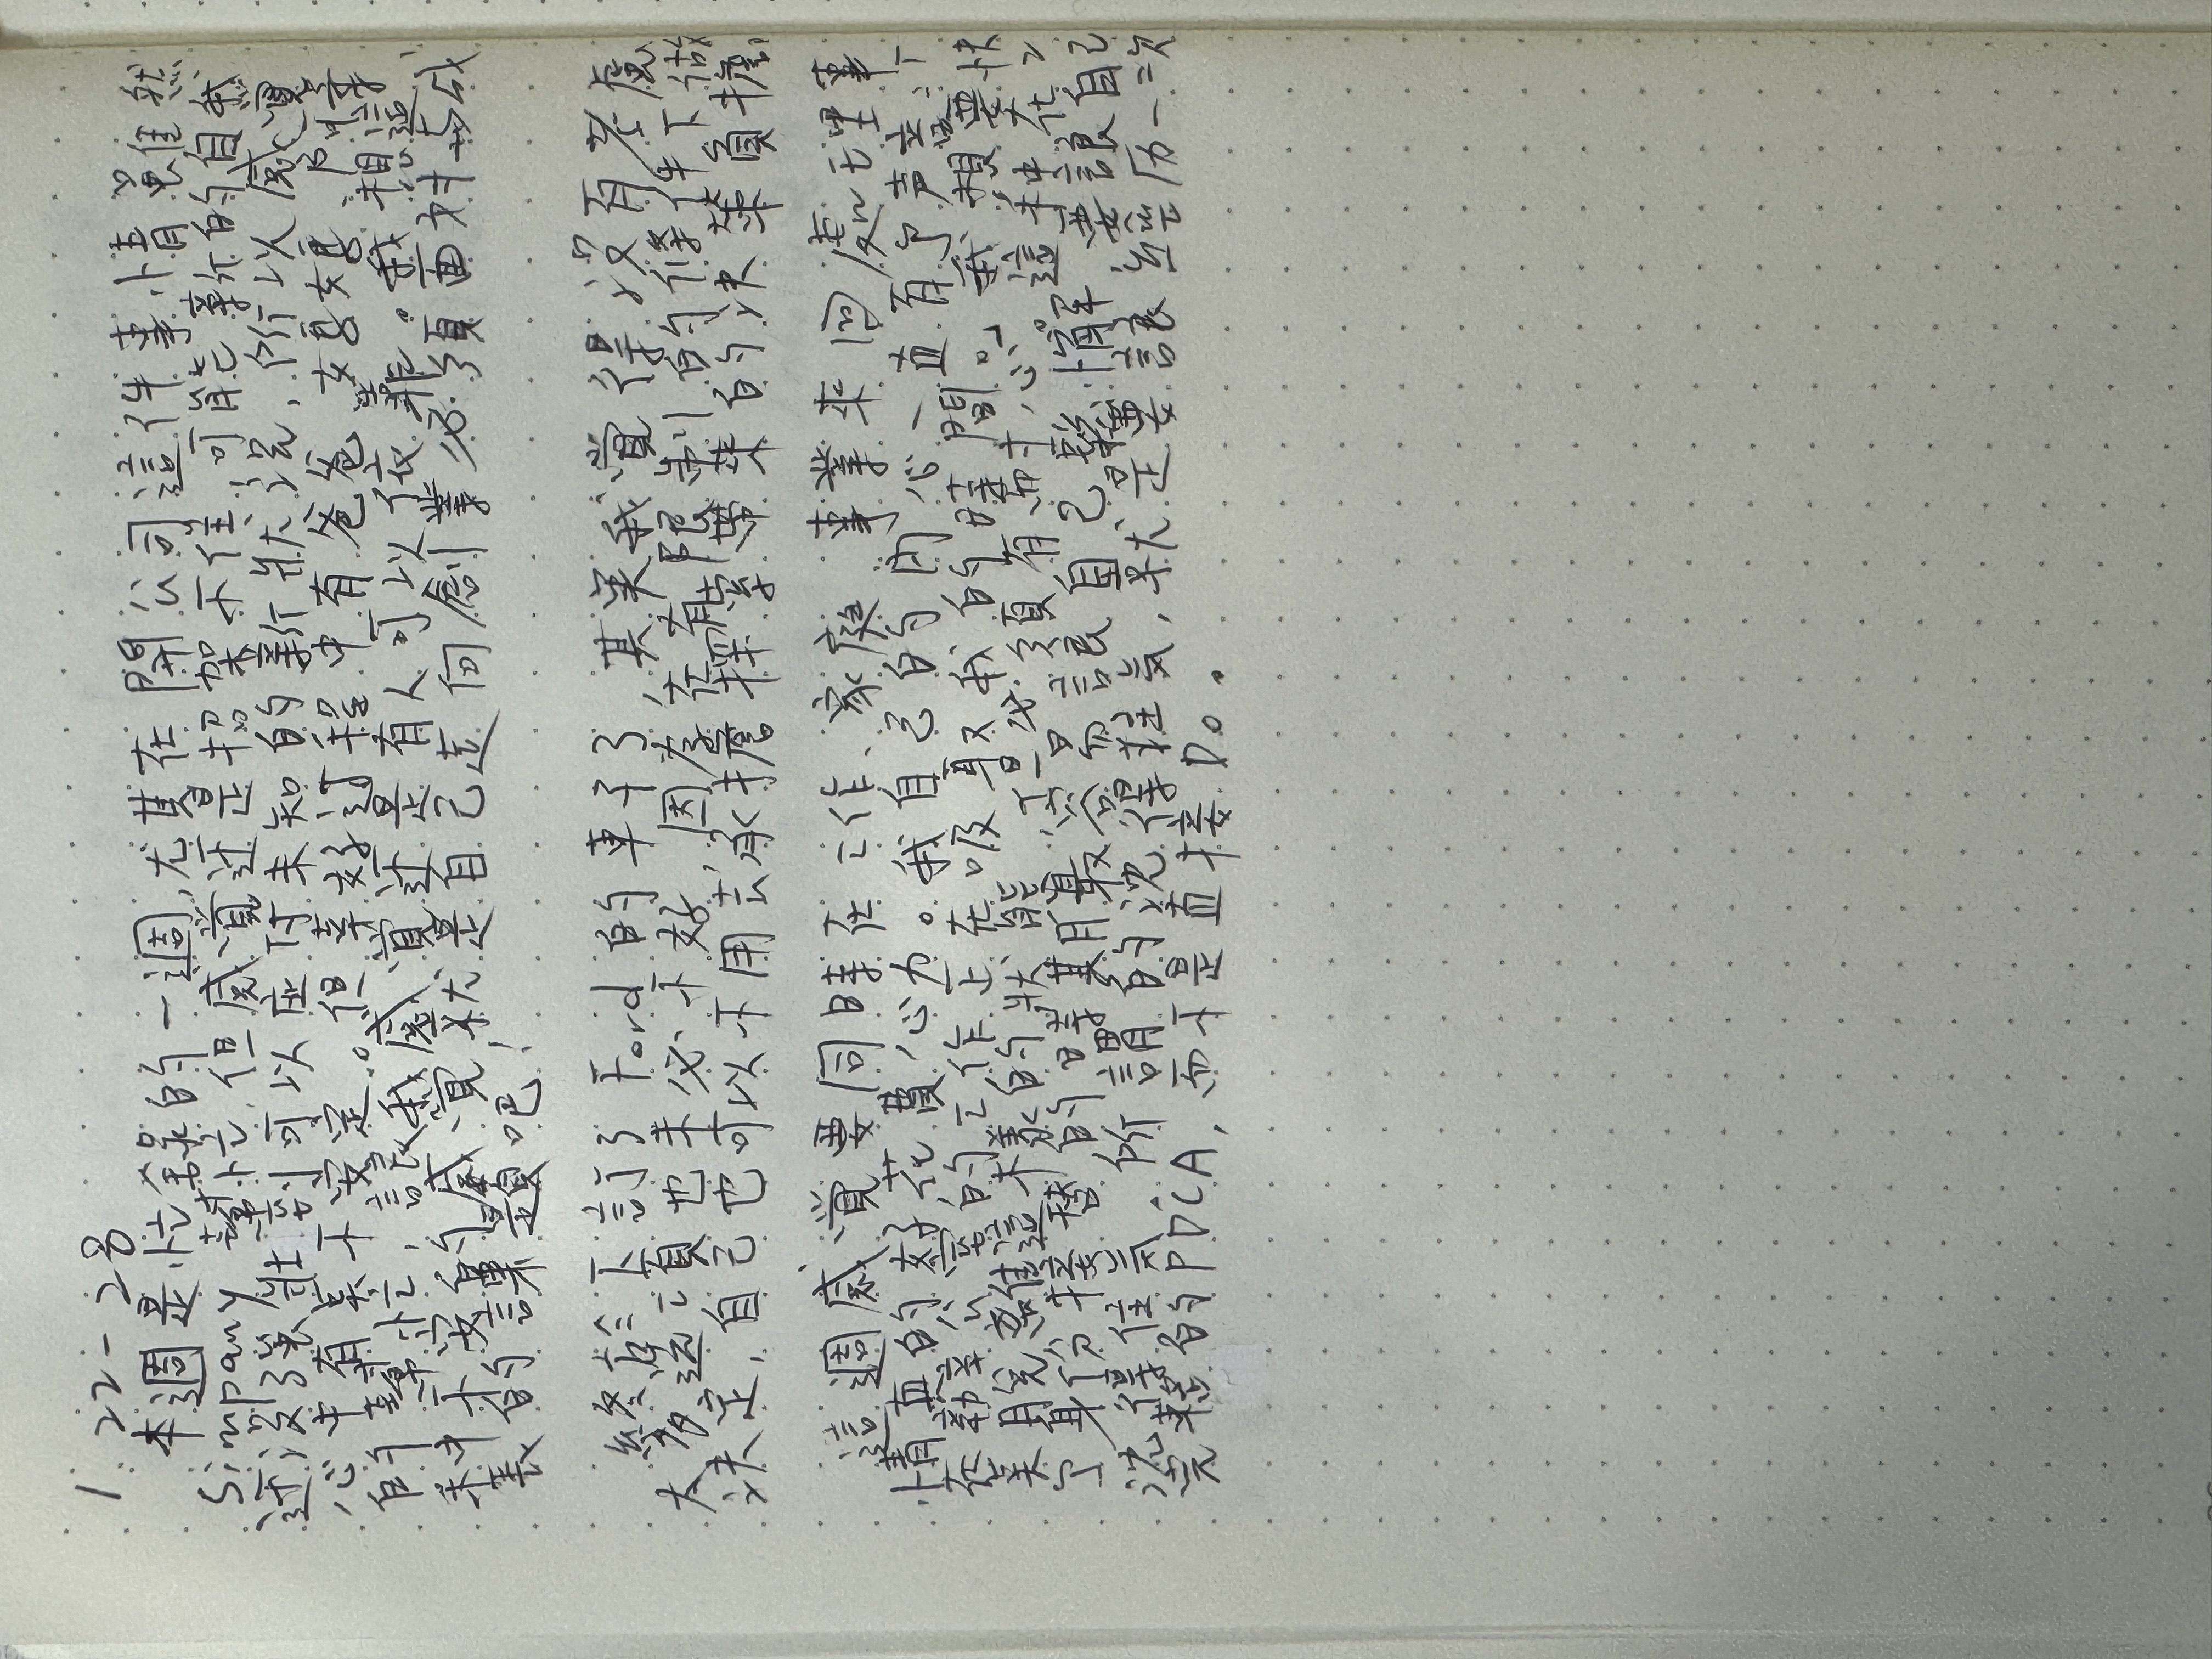 1.22-28
本週是忙祿的一週,尤其在開公司這件事情雖然
Simpany幫忙,但感覺还是招架不住,可能新的自我
还没強壯到可以应付未知的新狀況,所以感覺
心中有点不安定。但幸好過程中有爸爸、媽媽、阿華
的幫忙,讓我感覺还是有人可以依靠。我想這
種不安的感覺就是自己走向創業必須面对与成
長的課題吧!
終於下訂了Ford的車子了,其実我覚得没有考慮
太多選項也未必不好,因為在有限制的條件下做
決定,自己也可以不用去承擔探索帶來的決策負擔。
這週感覺要同時在工作、家庭、事業來回處理事
情真的蛮花費心力。我自己的内心一直有了声音:「
在勤業公蛮的工作正在吸取我的時間。」我想要快
点脫離這樣的狀態,但必須有耐心。這種在2
个身份接替的時期最容易讓自己鬆懈,要讓自己
沈得住気。所謂的沈得住気,就是要讓經历一次
完整的PDCA,而不是直接Do。